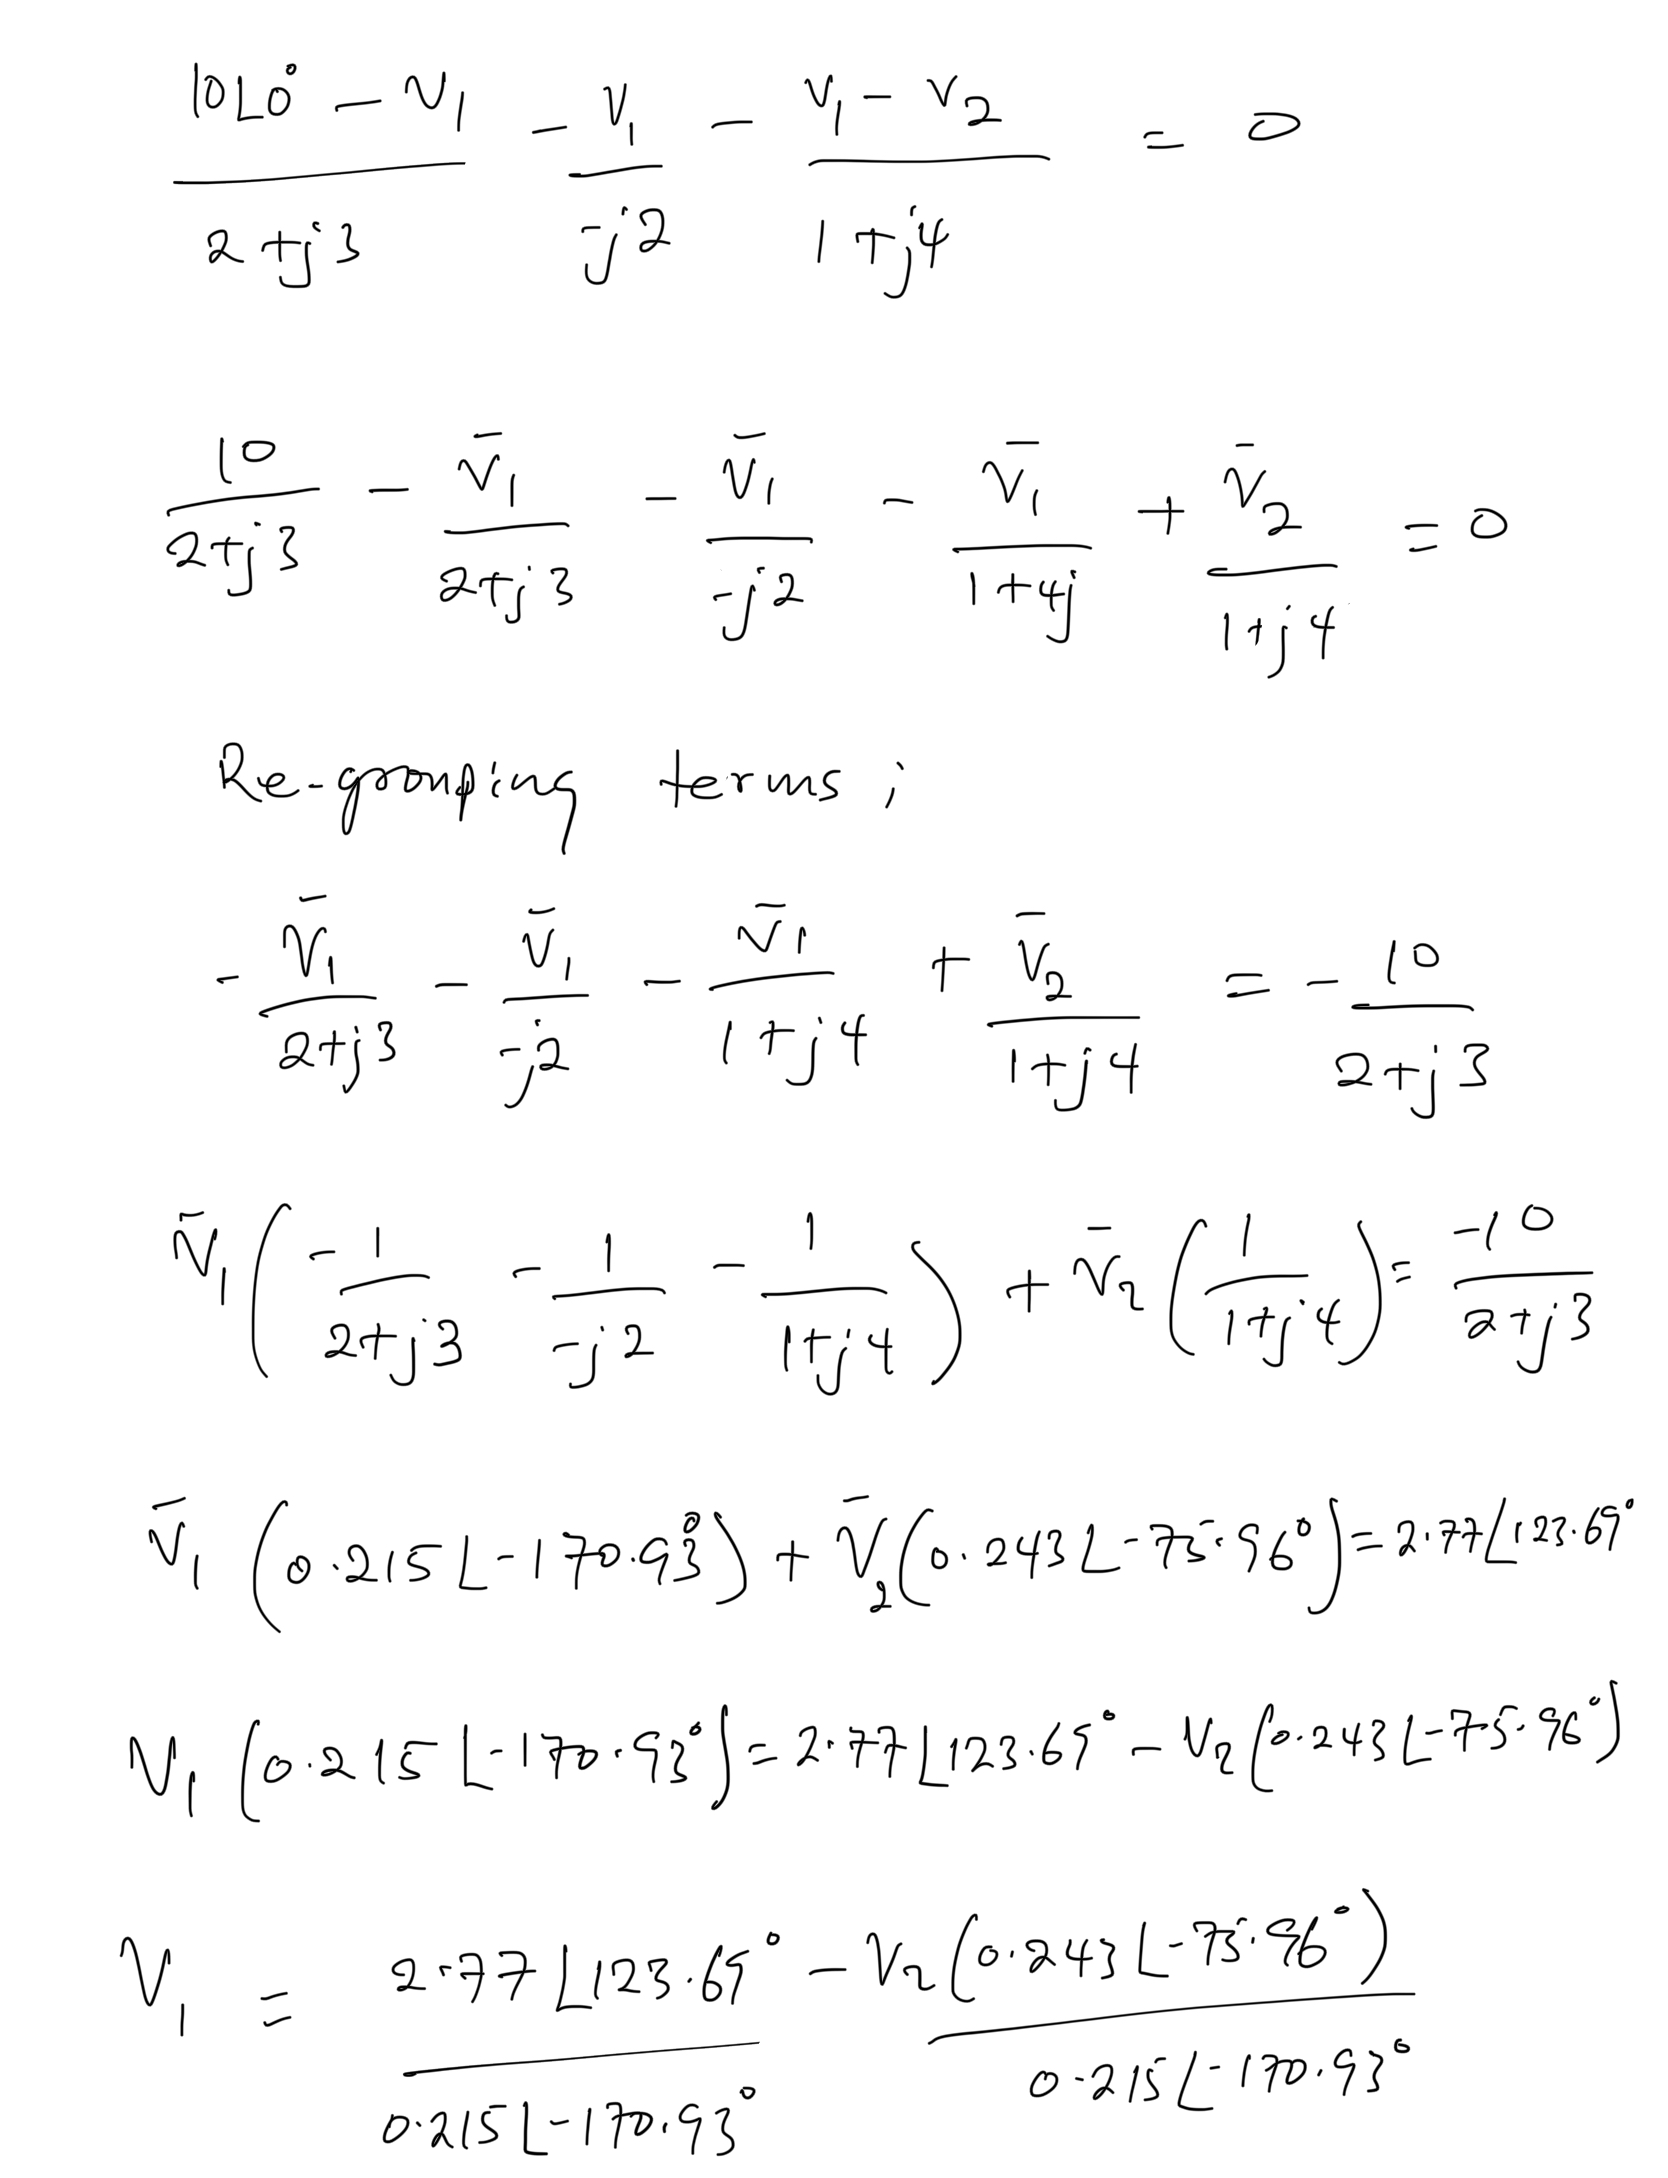 (10∠0° - V₁)/(2+j3) - V₁/(-j2) - (V₁-V₂)/(1+j4) = 0
10/(2+j3) - V̄₁/(2+j3) - V̄₁/(-j2) - V̄₁/(1+4j) + V̄₂/(1+j4) = 0
Re-grouping terms;
- V̄₁/(2+j3) - V̄₁/(-j2) - V̄₁/(1+j4) + V̄₂/(1+j4) = - 10/(2+j3)
V̄₁ ( - 1/(2+j3) - 1/(-j2) - 1/(1+j4) ) + V̄₂ ( 1/(1+j4) ) = -10/(2+j3)
V̄₁ (0.215∠-170.93°) + V̄₂ (0.243∠-75.96°) = 2.77∠123.69°
V₁ (0.215∠-170.93°) = 2.77∠123.69° - V₂ (0.243∠-75.96°)
V₁ = 2.77∠123.69° / 0.215∠-170.93° - V₂ (0.243∠-75.96°) / 0.215∠-170.93°